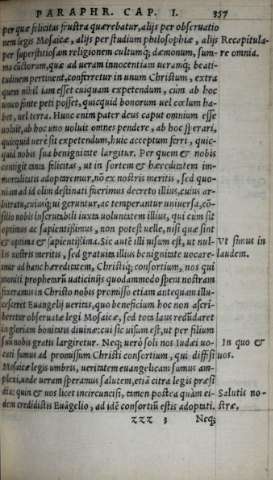 PARAPHR. CAP. I. 357
per quæ felicitas frustra quærebatur, alijs per obseruatio
nem legis Mosaicæ, alijs per studium philosophiæ, alijs Recapitula-
per superstitiosam religionem cultumq; dæmonum, sum- re omnia.
ma cunctorum, quæ ad ueram innocentiam ueramq; beati-
tudinem pertinent, conferretur in unum Christum, extra
quem nihil iam esset cuiquam expetendum, cùm ab hoc
unico fonte peti posset, quicquid bonorum uel cœlum ha-
bet, uel terra. Hunc enim pater deus caput omnium esse
uoluit, ab hoc uno uoluit omnes pendere, ab hoc sperari,
quicquid uerè sit expetendum, huic acceptum ferri, quic-
quid nobis sua benignitate largitur. Per quem & nobis
contigit tanta felicitas, ut in sortem & hæreditatem im-
mortalitatis adoptaremur, nō ex nostris meritis, sed quo-
niam ad id olim destinati fuerimus decreto illius, cuius ar-
bitratu, cuiusq; nutu geruntur, ac temperantur uniuersa, cō-
silio nobis inscrutabili iuxta uoluntatem illius, qui cùm sit
optimus ac sapientissimus, non potest uelle, nisi quæ sint
& optima & sapientissima. Sic autē illi uisum est, ut nul- Vt simus in
lis nostris meritis, sed gratuita illius benignitate uocare- laudem.
mur ad hanc hæreditatem, Christiq; consortium, nos qui
moniti prophetarū uaticinijs quodammodo spem nostram
fixeramus in Christo nobis promisso etiam antequam illu-
cesceret Euangelij ueritas, quo beneficium hoc non ascri-
beretur obseruatæ legi Mosaicæ, sed tota laus redūdaret
in gloriam bonitatis diuinæ: cui sic uisum est, ut per filium
suū nobis gratis largiretur. Neq; uerò soli nos Iudæi uo- In quo & 
cati sumus ad promissum Christi consortium, qui diffisi uos.
Mosaicæ legis umbris, ueritatem euangelicam sumus am-
plexi, unde ueram speramus salutem, etiā citra legis præsi
dia: quin & uos licet incircuncisi, tamen postea quàm ei- Salutis no-
dem credidistis Euāgelio, ad idē consortiū estis adoptati, stræ,
zzz 3 Neq;